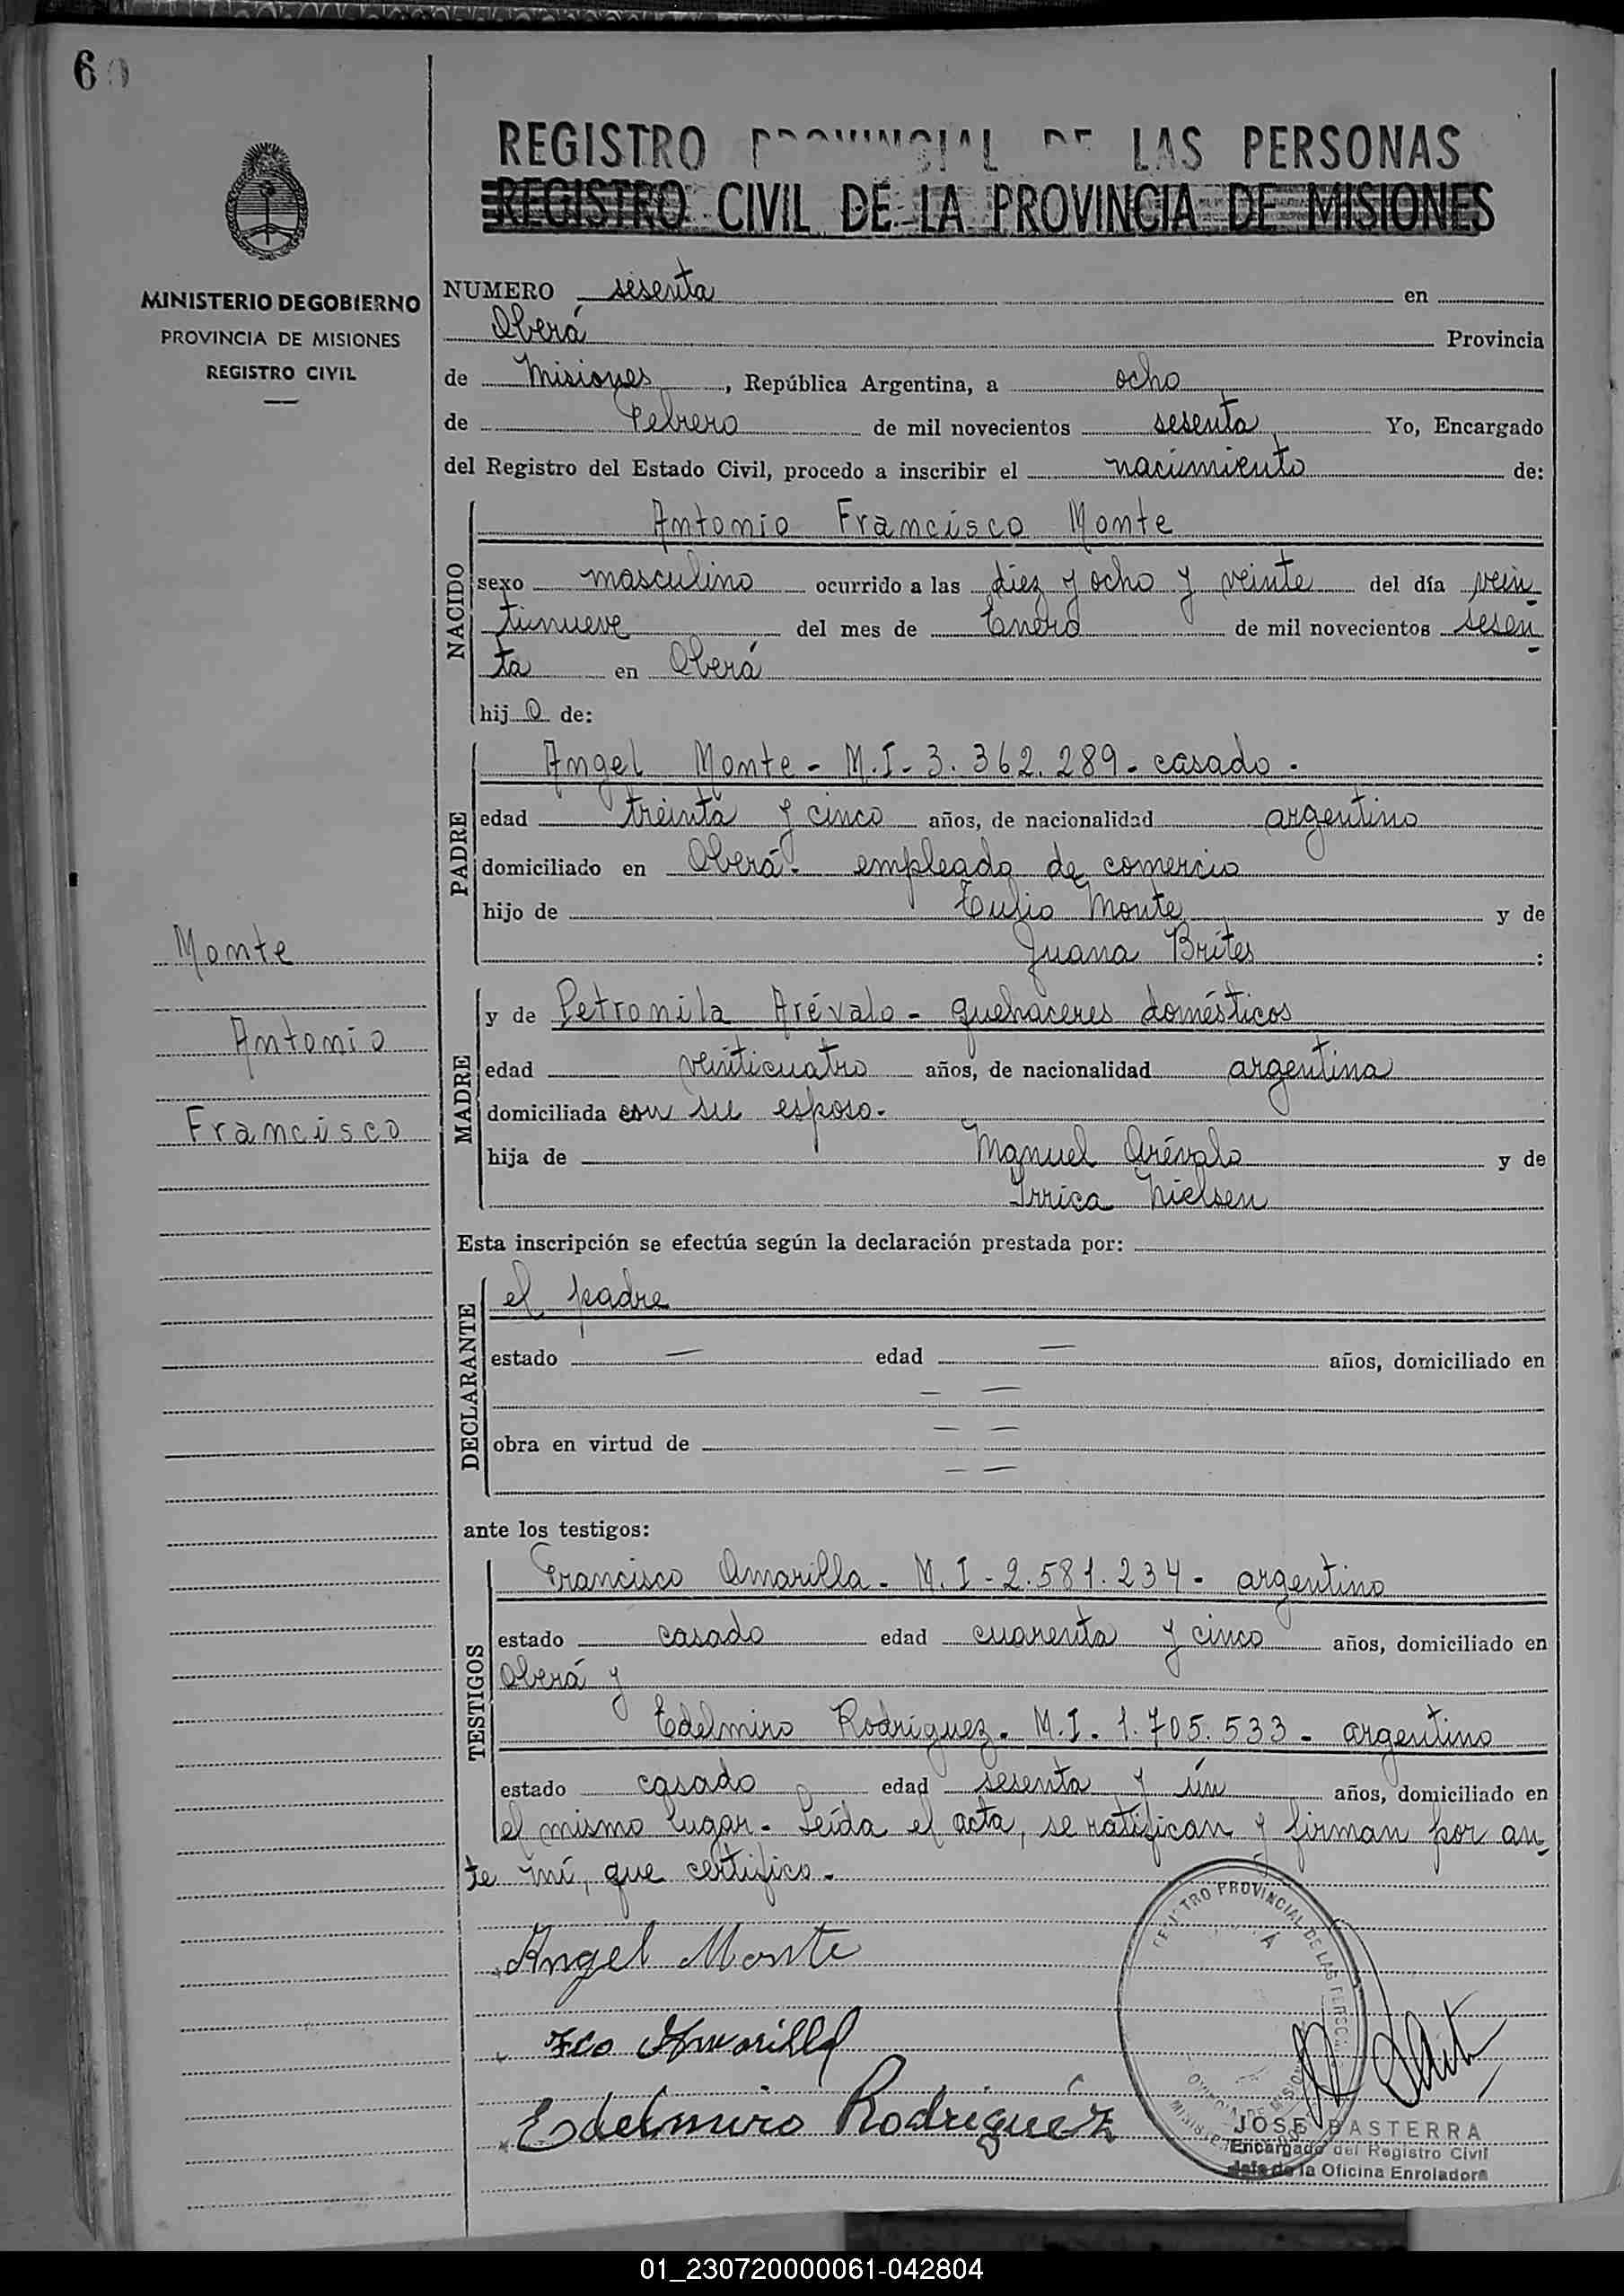 60
REGISTRO PROVINCIAL DE LAS PERSONAS
REGISTRO CIVIL DE LA PROVINCIA DE MISIONES
MINISTERIO DE GOBIERNO
PROVINCIA DE MISIONES
REGISTRO CIVIL
NUMERO sesenta en
Oberá Provincia
de Misiones, República Argentina, a ocho
de Febrero de mil novecientos sesenta Yo, Encargado
del Registro del Estado Civil, procedo a inscribir el nacimiento de:
NACIDO
Antonio Francisco Monte
sexo masculino ocurrido a las diez y ocho y veinte del día vein
tinueve del mes de Enero de mil novecientos sesen
ta en Oberá
hijo de:
PADRE
Angel Monte - M.I - 3.362.289 - casado -
edad treinta y cinco años, de nacionalidad argentino
domiciliado en Oberá - empleado de comercio
hijo de Tulio Monte y de
Juana Brites :
Monte
Antonio
Francisco
MADRE
y de Petronila Arévalo - quehaceres domésticos
edad veinticuatro años, de nacionalidad argentina
domiciliada con su esposo -
hija de Manuel Arévalo y de
Irrica Nielsen
Esta inscripción se efectúa según la declaración prestada por:
DECLARANTE
el padre
estado — edad — años, domiciliado en
— —
obra en virtud de — —
— —
ante los testigos:
TESTIGOS
Francisco Amarilla - M.I - 2.581.234 - argentino
estado casado edad cuarenta y cinco años, domiciliado en
Oberá y
Edelmiro Rodríguez - M.I - 1.705.533 - argentino
estado casado edad sesenta y ún años, domiciliado en
el mismo lugar - Leída el acta, se ratifican y firman por an
te mí, que certifico -
Angel Monte
Fco Amarilla
Edelmiro Rodriguéz
TRO PROVINCIAL DE LAS PERSO
JOSE BASTERRA
Encargado del Registro Civil
Jefe de la Oficina Enroladora
01_230720000061-042804